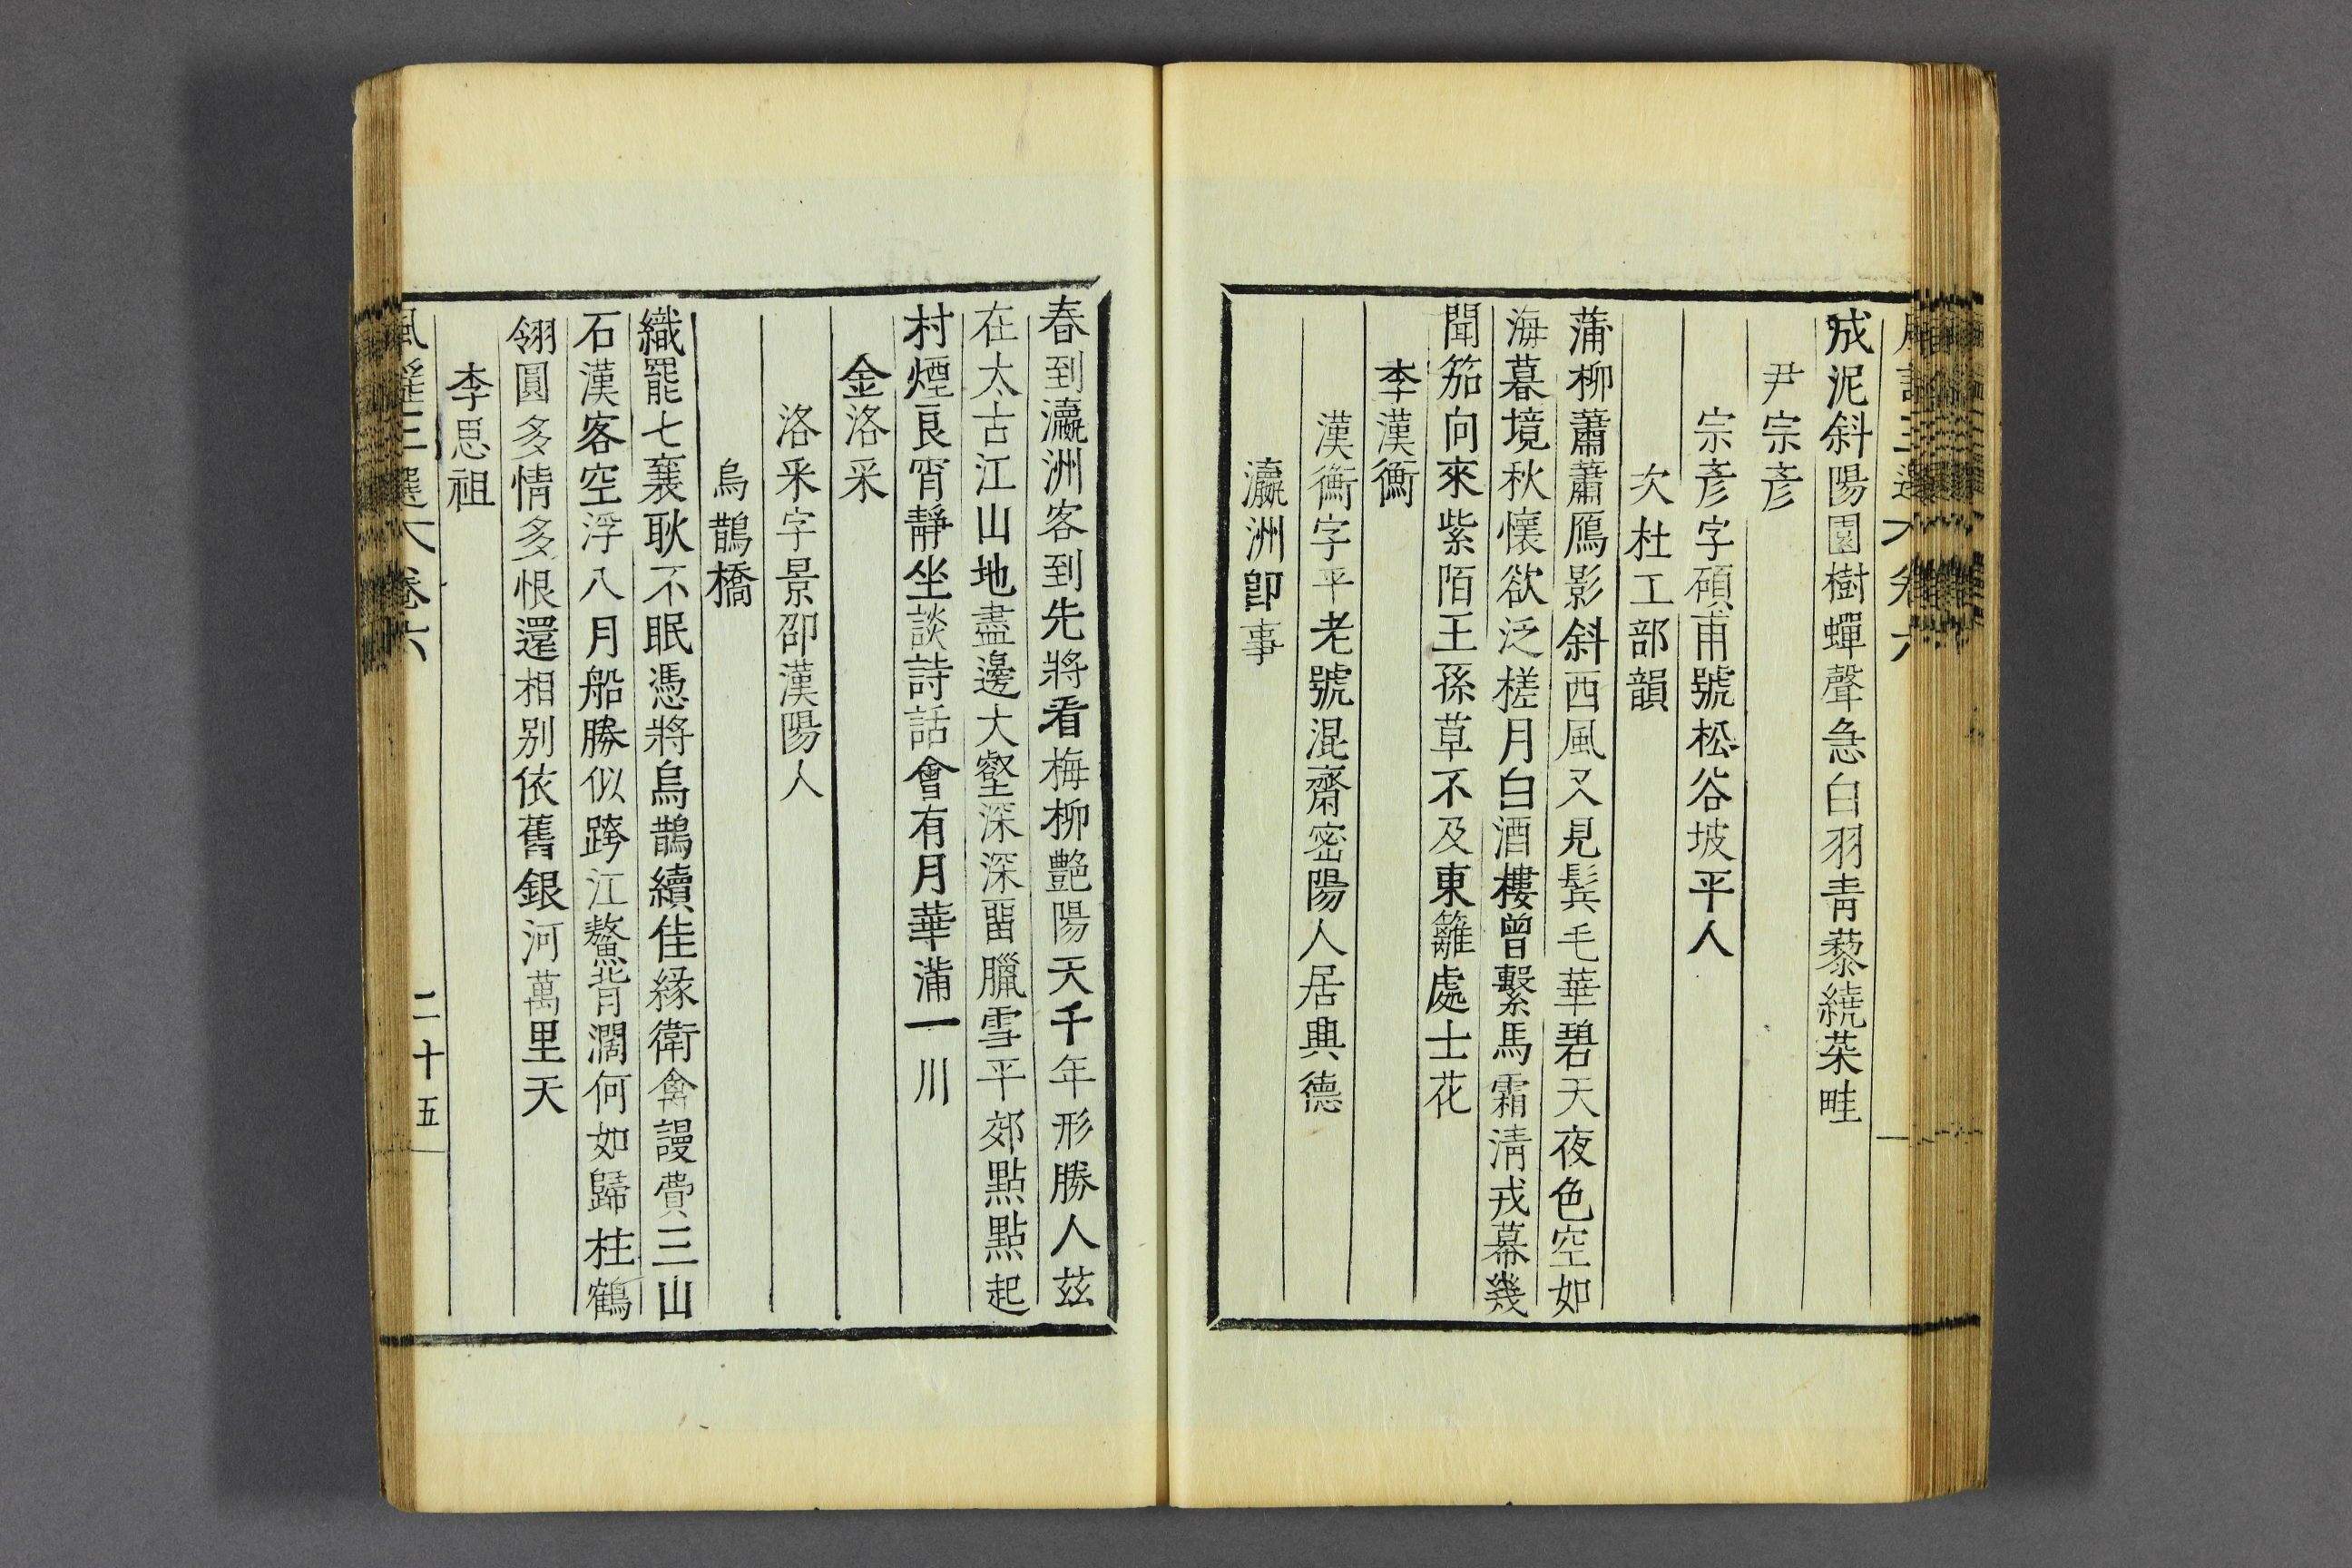 成泥斜陽園樹蟬聲急白羽靑藜繞菜畦
尹宗彥
宗彥字碩甫號松谷坡平人
次杜工部韻
蒲柳蕭蕭鴈影斜西風又見鬂毛華碧天夜色空如
海暮境秋懷欲泛槎月白酒樓曾繫馬霜淸戎幕幾
聞笳向來紫陌王孫草不及東籬處士花
李漢衡
漢衡字平老號混齋密陽人居典德
瀛洲卽事
春到瀛洲客到先將看梅柳艶陽天千年形勝人玆
在太古江山地盡邊大壑深深畱臘雪平郊點點起
村煙良宵靜坐談詩話會有月華滿一川
金洛采
洛采字景卲漢陽人
烏鵲橋
織罷七襄耿不眠憑將烏鵲續佳緣衛禽謾費三山
石漢客空浮八月船勝似跨江鰲背濶何如歸柱鶴
翎圓多情多恨還相別依舊銀河萬里天
李思祖
風謠三選 卷六 二十五